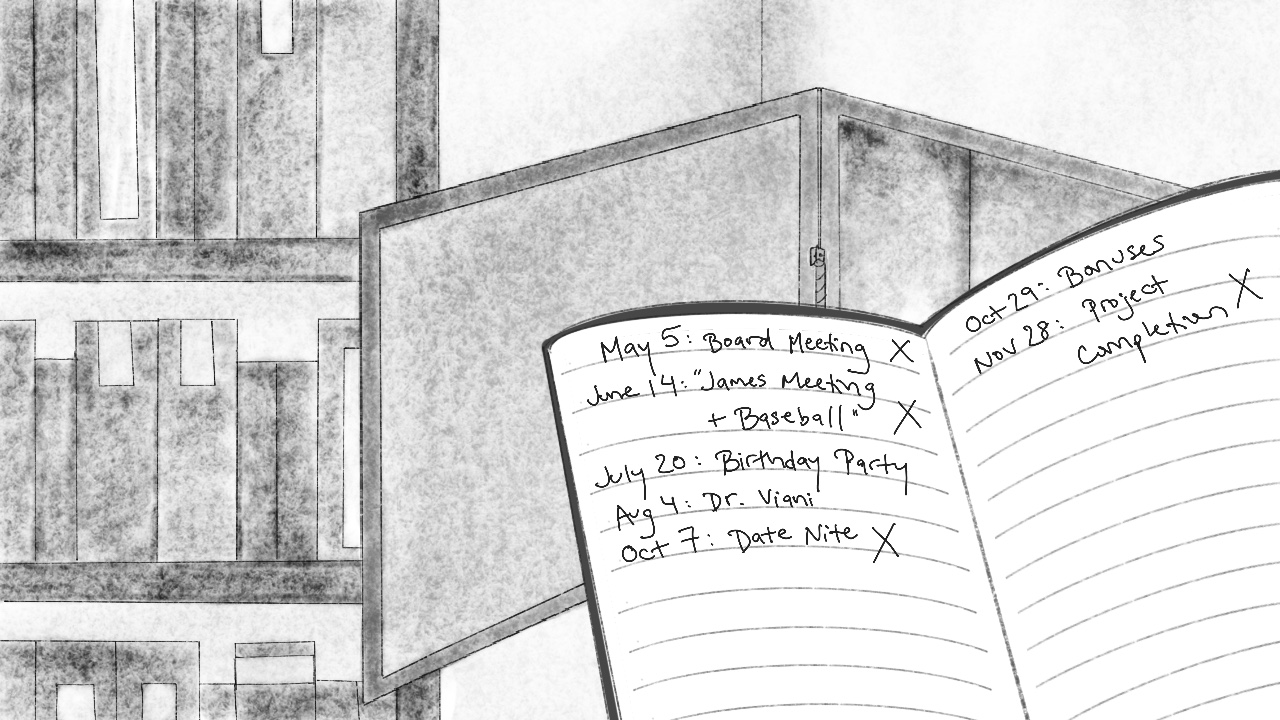 May 5: Board Meeting X
June 14: "James Meeting
+ Baseball" X
July 20: Birthday Party
Aug 4: Dr. Viani
Oct 7: Date Nite X
Oct 29: Bonuses
Nov 28: Project
Completion X